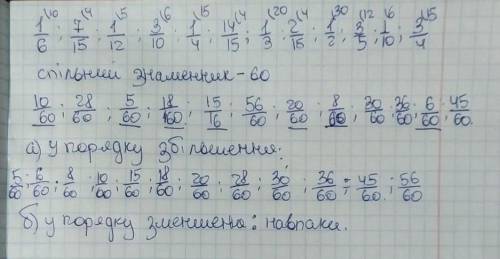 1/6\10; 7/15\4; 1/12\5; 3/10\6; 1/4\15; 14/15\4; 1/3\20; 2/15\4; 1/2\30; 3/5\12; 1/10\6; 3/4\15
спільний знаменник - 60
10/60; 28/60; 5/60; 18/60; 15/16; 56/60; 20/60; 8/60; 30/60; 36/60; 6/60; 45/60.
а) у порядку збільшення:
5/60; 6/60; 8/60; 10/60; 15/60; 18/60; 20/60; 28/60; 30/60; 36/60; 45/60; 56/60
б) у порядку зменшена: навпаки.